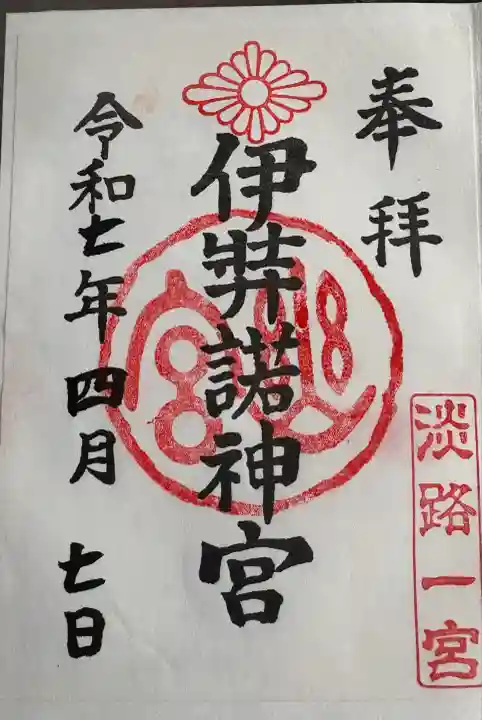 奉拝
伊弉諾神宮
令和七年四月七日
淡路一宮